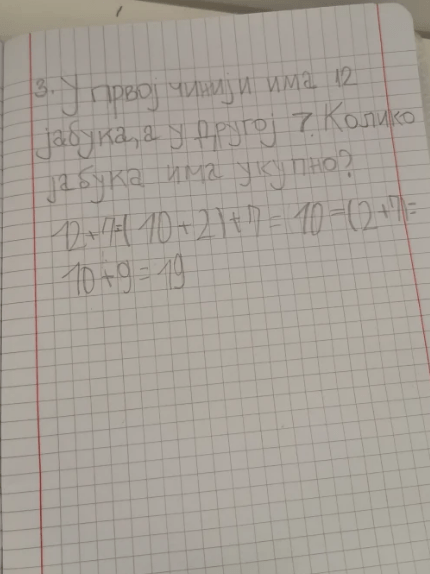 3. У првој чинији има 12
јабука, а у другој 7. Колико
јабука има укупно?
12+7=(10+2)+7=10=(2+7)=
10+9=19